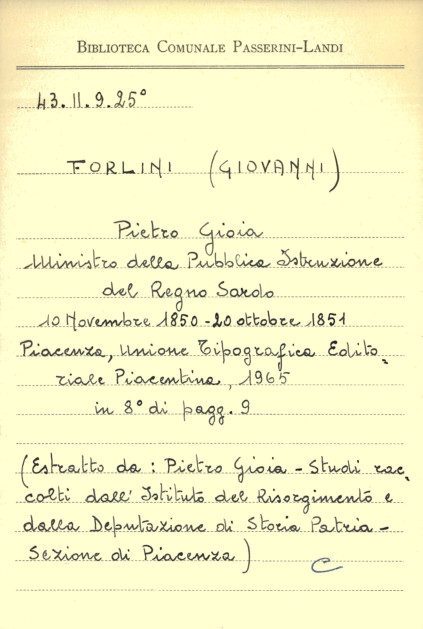 BIBLIOTECA COMUNALE PASSERINI-LANDI
43.II.9.25°
FORLINI (GIOVANNI)
Pietro Gioia
Ministro della Pubblica Istruzione
del Regno Sardo
10 Novembre 1850-20 ottobre 1851
Piacenza, Unione Tipografica Edito-
riale Piacentina, 1965
in 8° di pagg. 9
(Estratto da: Pietro Gioia - Studi rac-
colti dall'Istituto del Risorgimento e
dalla Deputazione di Storia Patria -
Sezione di Piacenza)
C